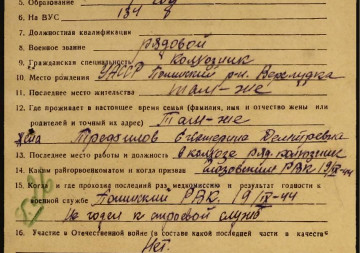 5. Образование 1 год
6. На ВУС 134 8
7. Должностная квалификация
8. Военное звание рядовой
9. Гражданская специальность колхозник
10. Место рождения УАССР р-н.
11. Последнее место жительства там-же
12. Где проживает в настоящее время семья (фамилия, имя и отчество жены или
родителей и точный их адрес) Там-же
Екатерина Дмитревна
13. Последнее место работы и должность в колхозе ряд. колхозник
14. Каким райгорвоенкоматом и когда призван РВК 19/IX-44
15. Когда и где проходил последний раз медкомиссию и результат годности к
военной службе РВК. 19/IX-44
Не годен к строевой служб
16. Участие в Отечественной войне (в составе какой последней части в качестве
Нет.